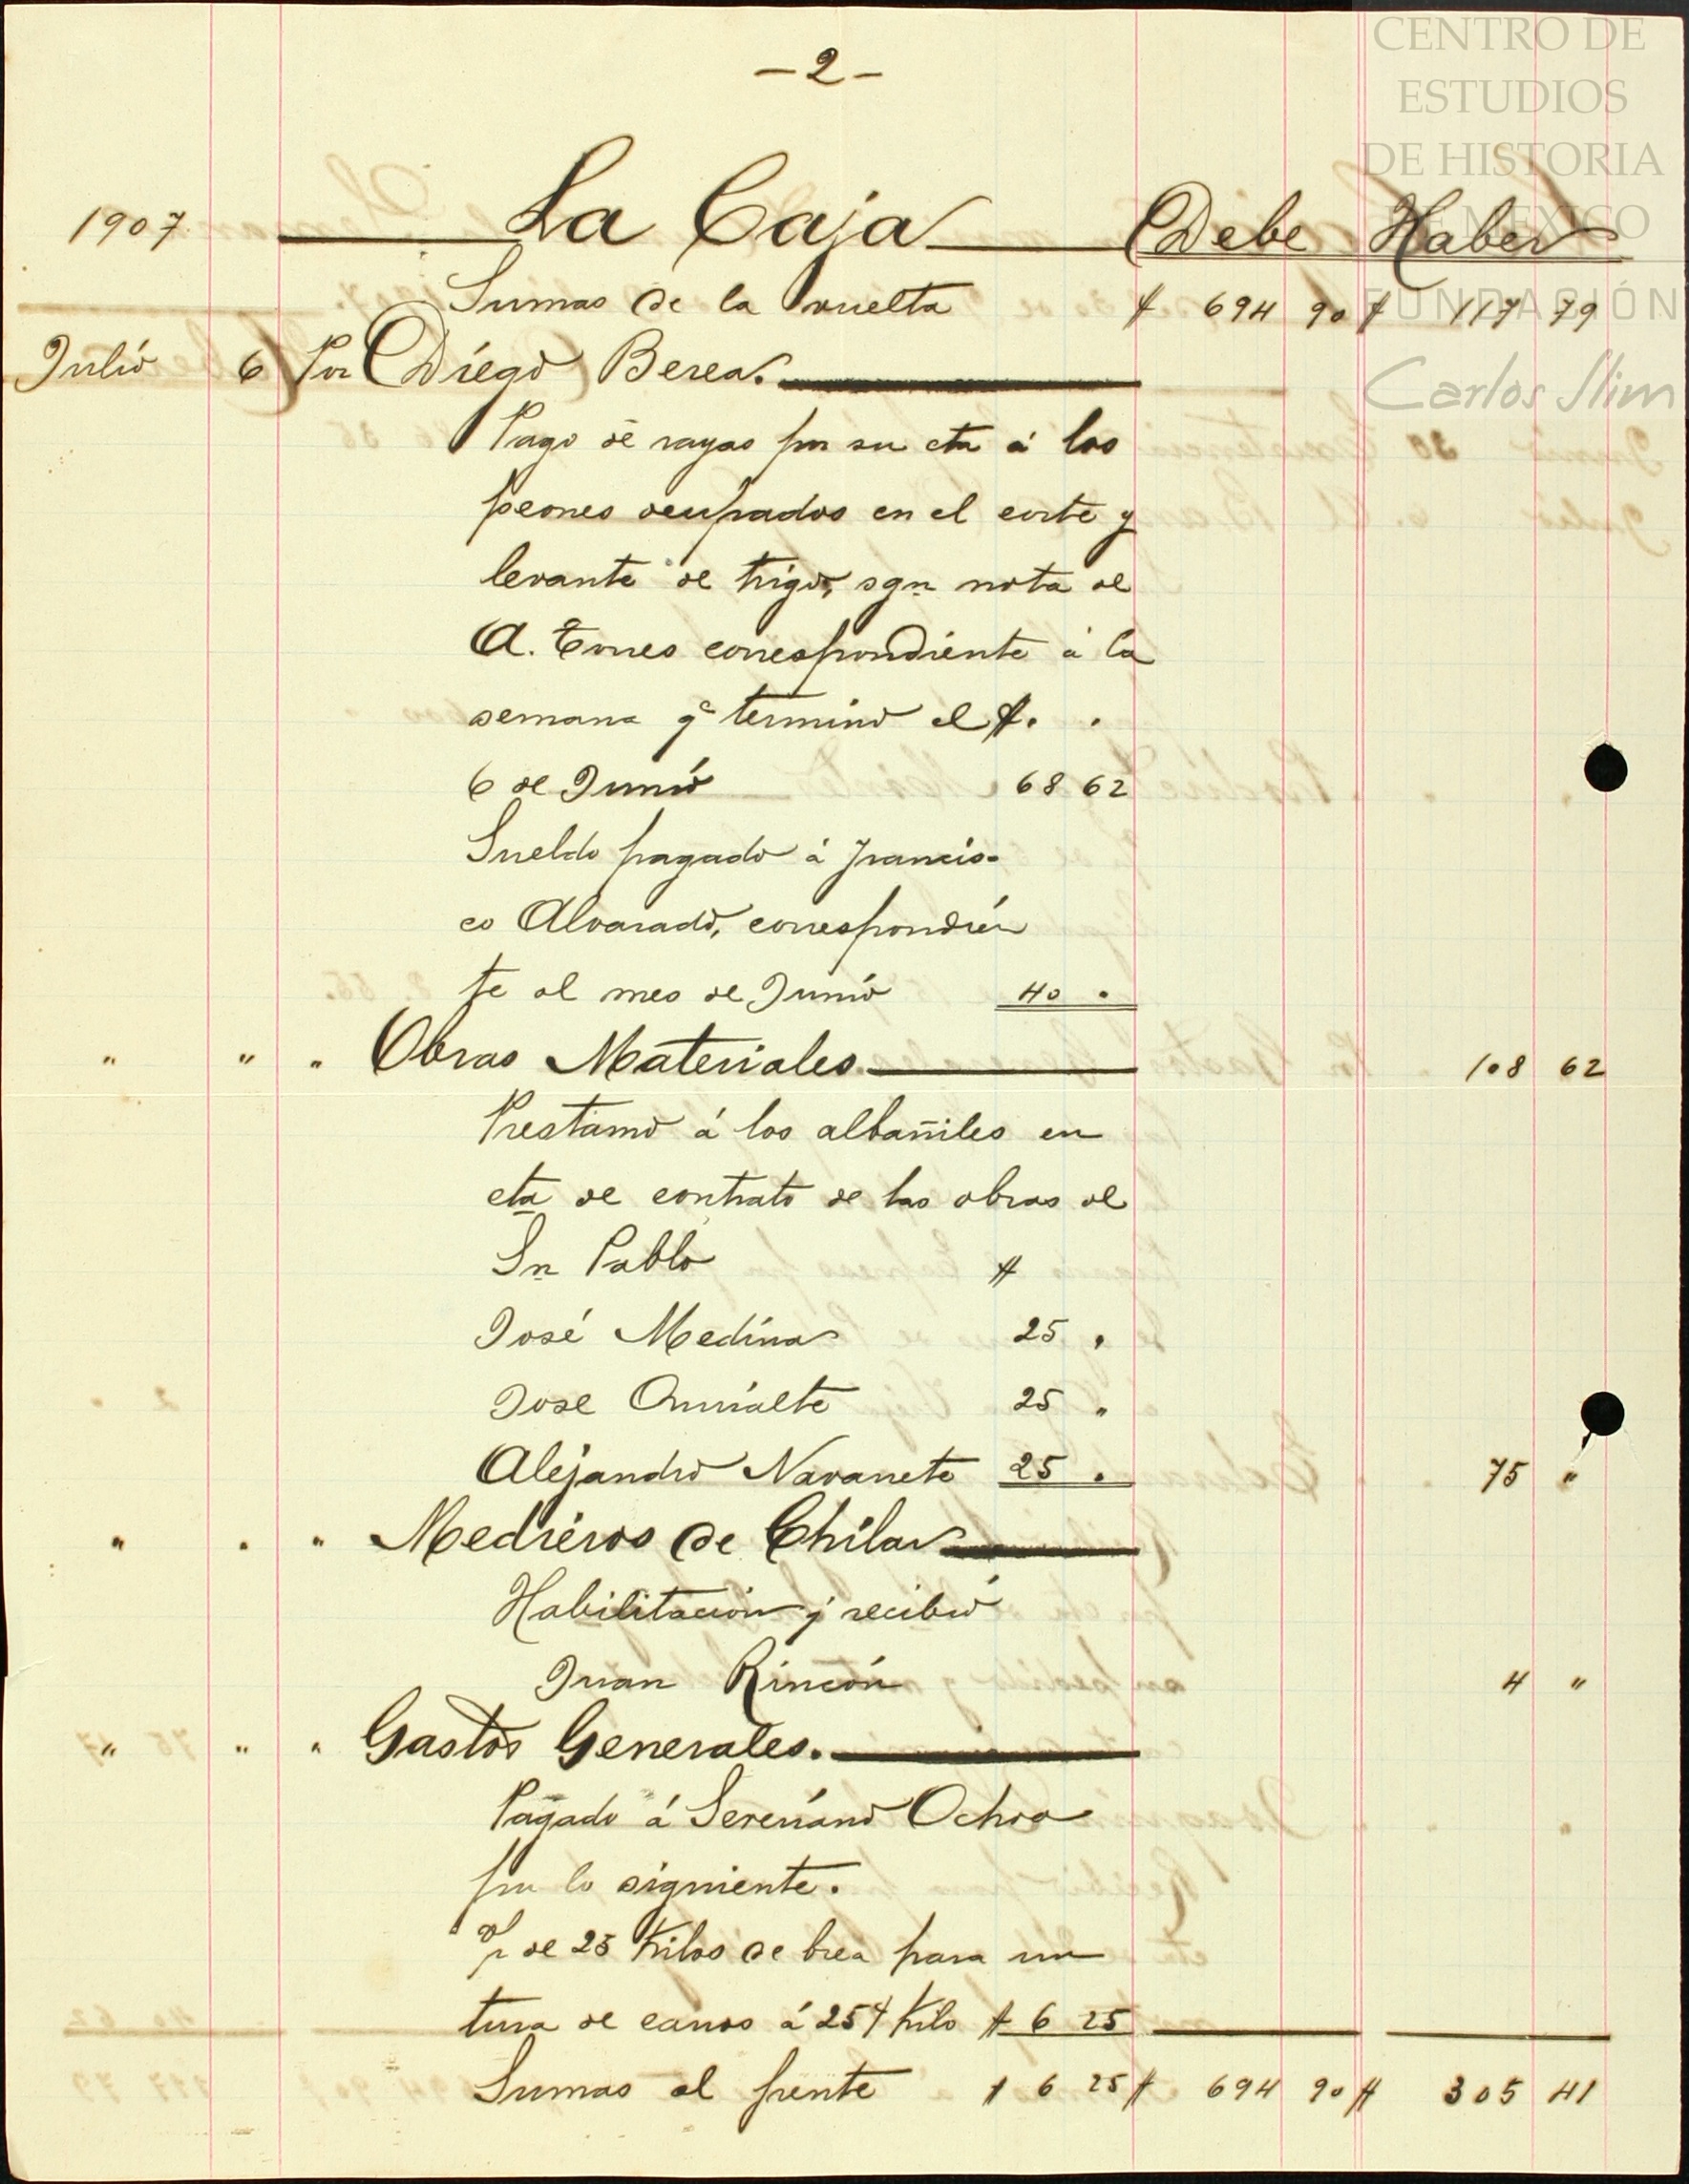 CENTRO DE
ESTUDIOS
DE HISTORIA
DE MÉXICO
FUNDACIÓN
Carlos Slim
- 2 -
1907. La Caja Debe Haber
Sumas de la vuelta $ 694 90 $ 117 79
Julio 6 Por Diego Berea.
Pago de rayas por su cta á los
peones ocupados en el corte y
levante de trigo, sgn nota de
A. Torres correspondiente á la
semana qe terminó el $. .
6 de Junio 68 62
Sueldo pagado á Francis-
co Alvarado, correspondien
te al mes de Junio 40 .
" " " Obras Materiales 108 62
Prestamo á los albañiles en
cta de contrato de las obras de
Sn Pablo $
José Medina 25 "
Jose 25 "
Alejandro Navarrete 25 . 75 "
" " " Medieros de Chilar
Habilitación q recibió
Juan Rincón 4 "
" " " Gastos Generales.
Pagado á Severiano Ochoa
por lo siguiente.
de 25 Kilos de brea para un
tura de carros á 25¢ Kilo $ 6 25
Sumas al frente $ 6 25 $ 694 90 $ 305 41